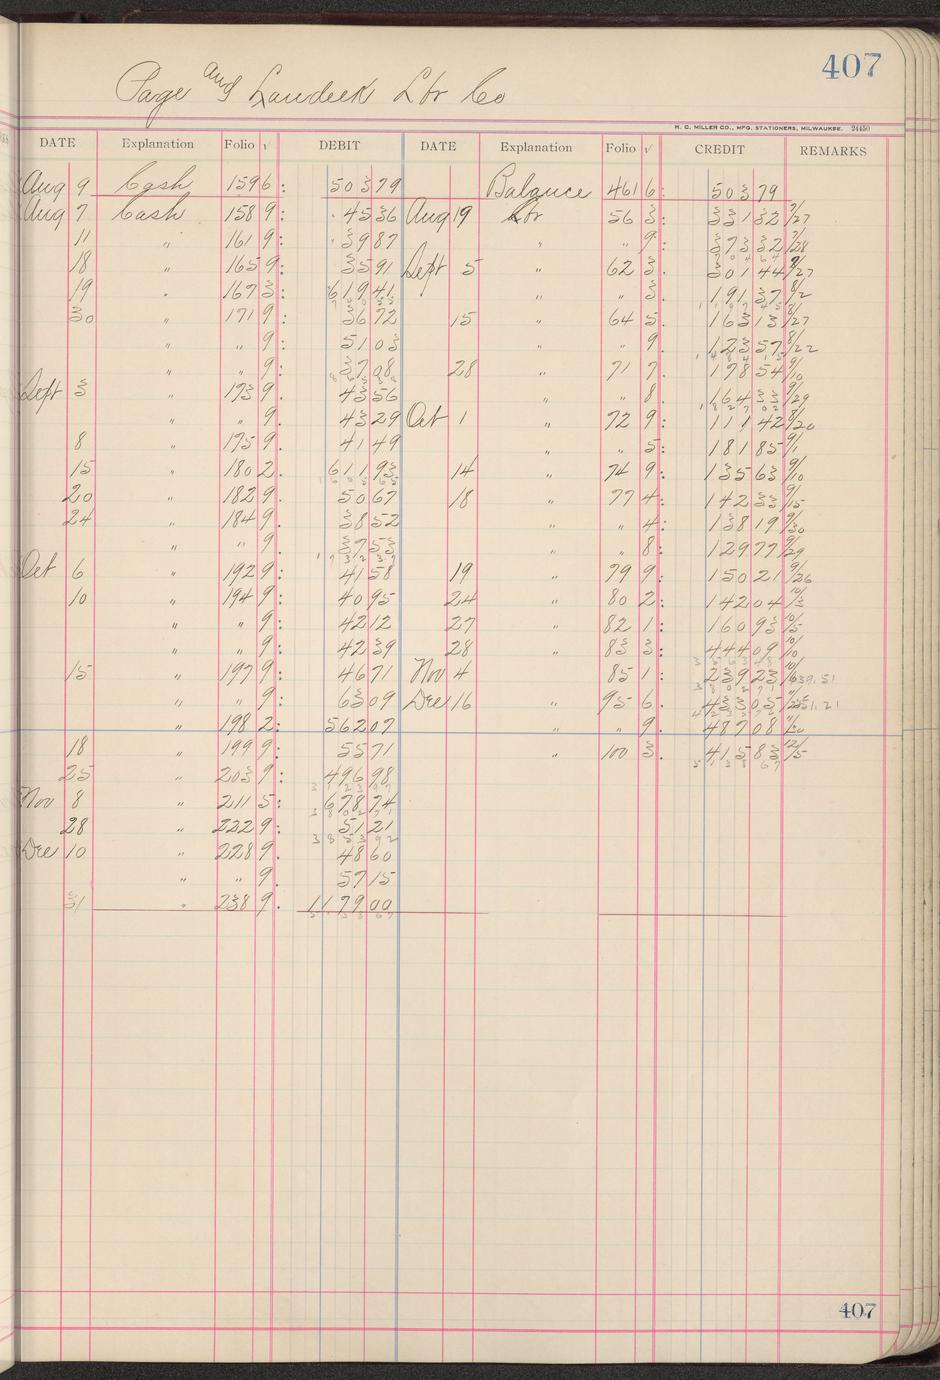 407
Page and Landeck Lbr Co
H. C. MILLER CO., MFG. STATIONERS, MILWAUKEE. 24450
DATE Explanation Folio √ DEBIT DATE Explanation Folio √ CREDIT REMARKS
Aug 9 Cash 159 6 : 503 79 Balance 461 6 : 503 79
Aug 7 Cash 158 9 : 45 36 Aug 19 Lbr 56 3 : 331 32 7/27
11 " 161 9 : 39 87 " " 9 : 373 32 7/28
18 " 165 9 : 35 91 Sept 5 " 62 3 . 301 44 8/27
19 " 167 3 : 619 41 " " 3 . 191 37 8/2
30 " 171 9 : 36 72 15 " 64 5 . 163 13 8/27
" " 9 : 51 03 " " 9 . 123 57 8/22
" " 9 : 37 08 28 " 71 7 . 178 54 9/10
Sept 3 " 173 9 : 43 56 " " 8 . 164 33 9/29
" " 9 . 43 29 Oct 1 " 72 9 : 111 42 8/20
8 " 175 9 : 41 49 " " 5 : 181 85 9/1
15 " 180 2 . 611 93 14 " 74 9 : 135 63 9/10
20 " 182 9 . 50 67 18 " 77 4 : 142 33 9/15
24 " 184 9 . 38 52 " " 4 : 138 19 9/30
" " 9 . 37 53 " " 8 : 129 77 9/29
Oct 6 " 192 9 : 41 58 19 " 79 9 : 150 21 9/26
10 " 194 9 : 40 95 24 " 80 2 : 142 04 10/3
" " 9 : 42 12 27 " 82 1 : 160 93 10/5
" " 9 : 42 39 28 " 83 3 : 444 09 10/10
15 " 197 9 : 46 71 Nov 4 " 85 1 : 239 23
" " 9 : 63 09 Dec 16 " 95 6 . 433 05
" 198 2 : 562 07 " " 9 . 487 08
18 " 199 9 : 55 71 " 100 3 . 415 83 12/5
25 " 203 9 : 496 98
Nov 8 " 211 5 : 678 74
28 " 222 9 : 51 21
Dec 10 " 228 9 . 48 60
" " 9 . 57 15
31 " 238 9 . 1179 00
407